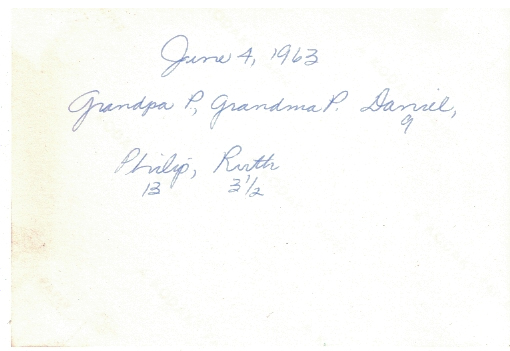 June 4, 1963
Grandpa P, Grandma P. Daniel,
9
Philip, Ruth
13 3 1/2